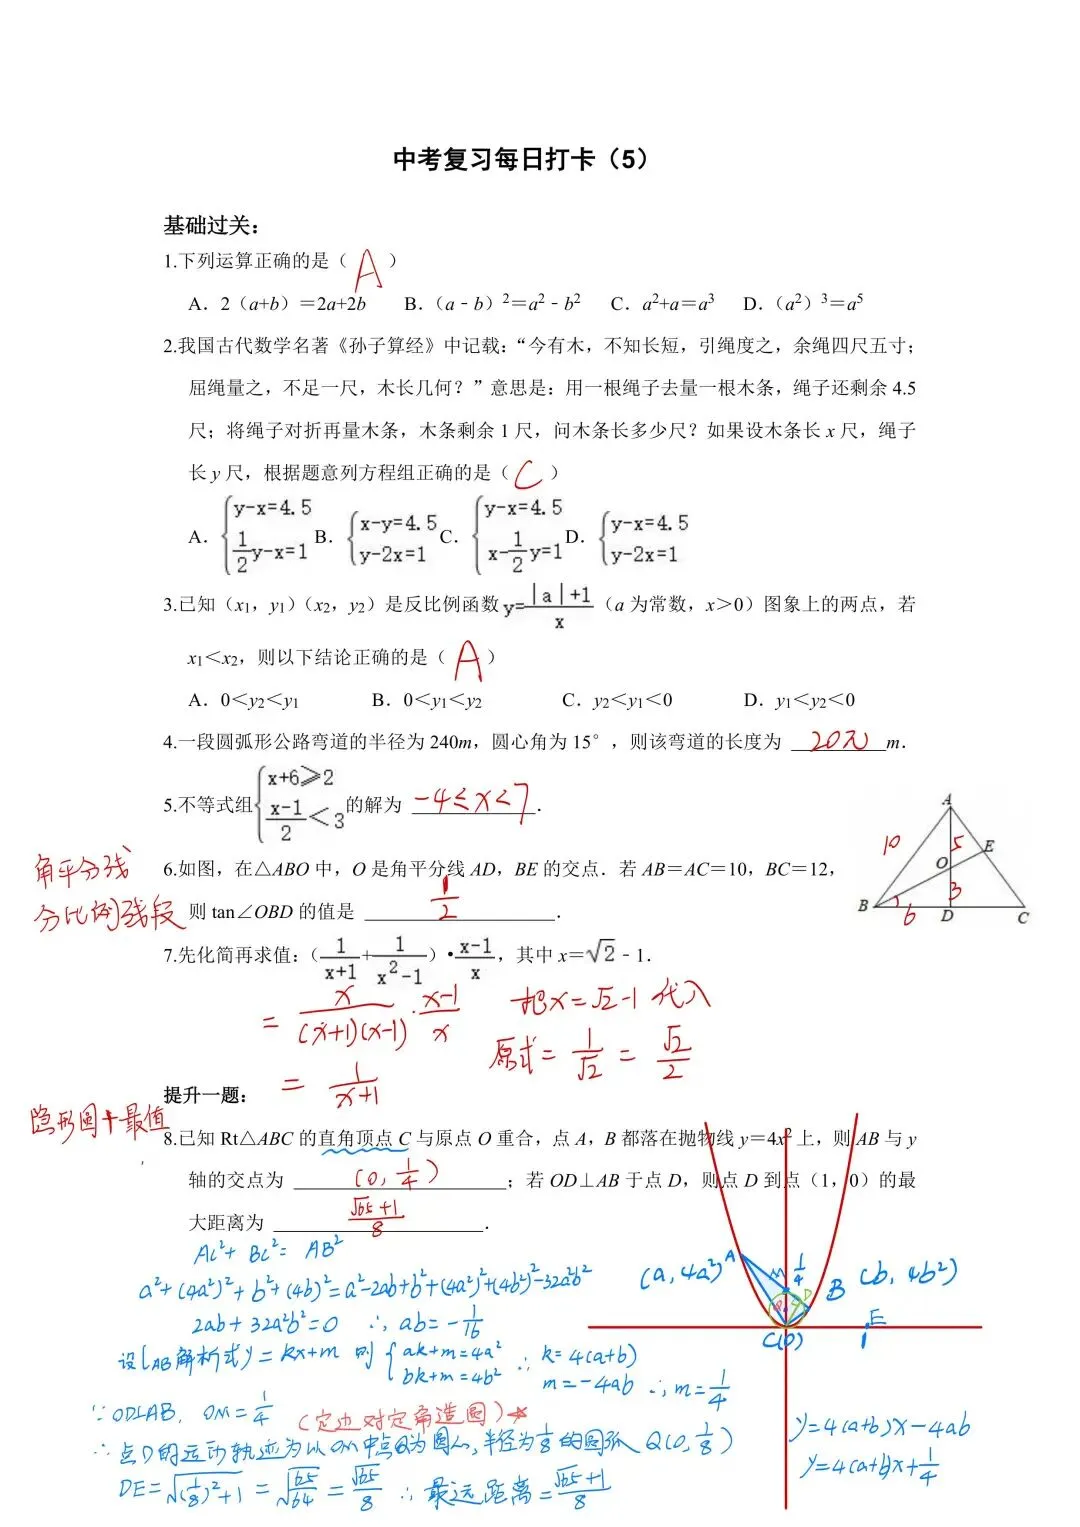 中考复习每日打卡（5）
基础过关：
1.下列运算正确的是（ A ）
A．2（a+b）=2a+2b B．（a﹣b）²=a²﹣b² C．a²+a=a³ D．（a²）³=a⁵
2.我国古代数学名著《孙子算经》中记载：“今有木，不知长短，引绳度之，余绳四尺五寸；
屈绳量之，不足一尺，木长几何？”意思是：用一根绳子去量一根木条，绳子还剩余 4.5
尺；将绳子对折再量木条，木条剩余 1 尺，问木条长多少尺？如果设木条长 x 尺，绳子
长 y 尺，根据题意列方程组正确的是（ C ）
A．{y-x=4.5, 1/2y-x=1 B．{x-y=4.5, y-2x=1 C．{y-x=4.5, x-1/2y=1 D．{y-x=4.5, y-2x=1
3.已知（x₁，y₁）（x₂，y₂）是反比例函数 y=|a|+1/x （a 为常数，x＞0）图象上的两点，若
x₁＜x₂，则以下结论正确的是（ A ）
A．0＜y₂＜y₁ B．0＜y₁＜y₂ C．y₂＜y₁＜0 D．y₁＜y₂＜0
4.一段圆弧形公路弯道的半径为 240m，圆心角为 15°，则该弯道的长度为 20π m．
5.不等式组{x+6≥2, x-1/2＜3 的解为 -4≤x<7 ．
角平分线
分比例线段
6.如图，在△ABO 中，O 是角平分线 AD，BE 的交点．若 AB＝AC＝10，BC＝12，
则 tan∠OBD 的值是 1/2 ．
A
10
5
E
O
3
B
6
D
C
7.先化简再求值：（1/x+1 + 1/x²-1）•x-1/x，其中 x＝√2﹣1．
= x/(x+1)(x-1) · x-1/x 把x=√2-1代入
= 1/x+1 原式= 1/√2 = √2/2
提升一题：
隐形圆+最值
8.已知 Rt△ABC 的直角顶点 C 与原点 O 重合，点 A，B 都落在抛物线 y＝4x² 上，则 AB 与 y
轴的交点为 (0, 1/4) ；若 OD⊥AB 于点 D，则点 D 到点（1，0）的最
大距离为 √65+1/8 ．
AC²+ BC²= AB²
a²+(4a²)²+b²+(4b)²=a²-2ab+b²+(4a²)²+(4b²)²-32a²b²
2ab+32a²b²=0 ∴ab=-1/16
设lAB解析式y=kx+m 则{ak+m=4a², bk+m=4b² ∴k=4(a+b) m=-4ab ∴m=1/4
∵OD⊥AB, OM=1/4 (定边对定角造圆)
∴点D的运动轨迹为以OM中点Q为圆心,半径为1/8的圆弧 Q(0,1/8)
DE=√(1/8)²+1 = √65/64 = √65/8 ∴最远距离=√65+1/8
(a, 4a²)
A
M
1/4
D
B
(b, 4b²)
Q
C(O)
E
1
y=4(a+b)x-4ab
y=4(a+b)x+1/4